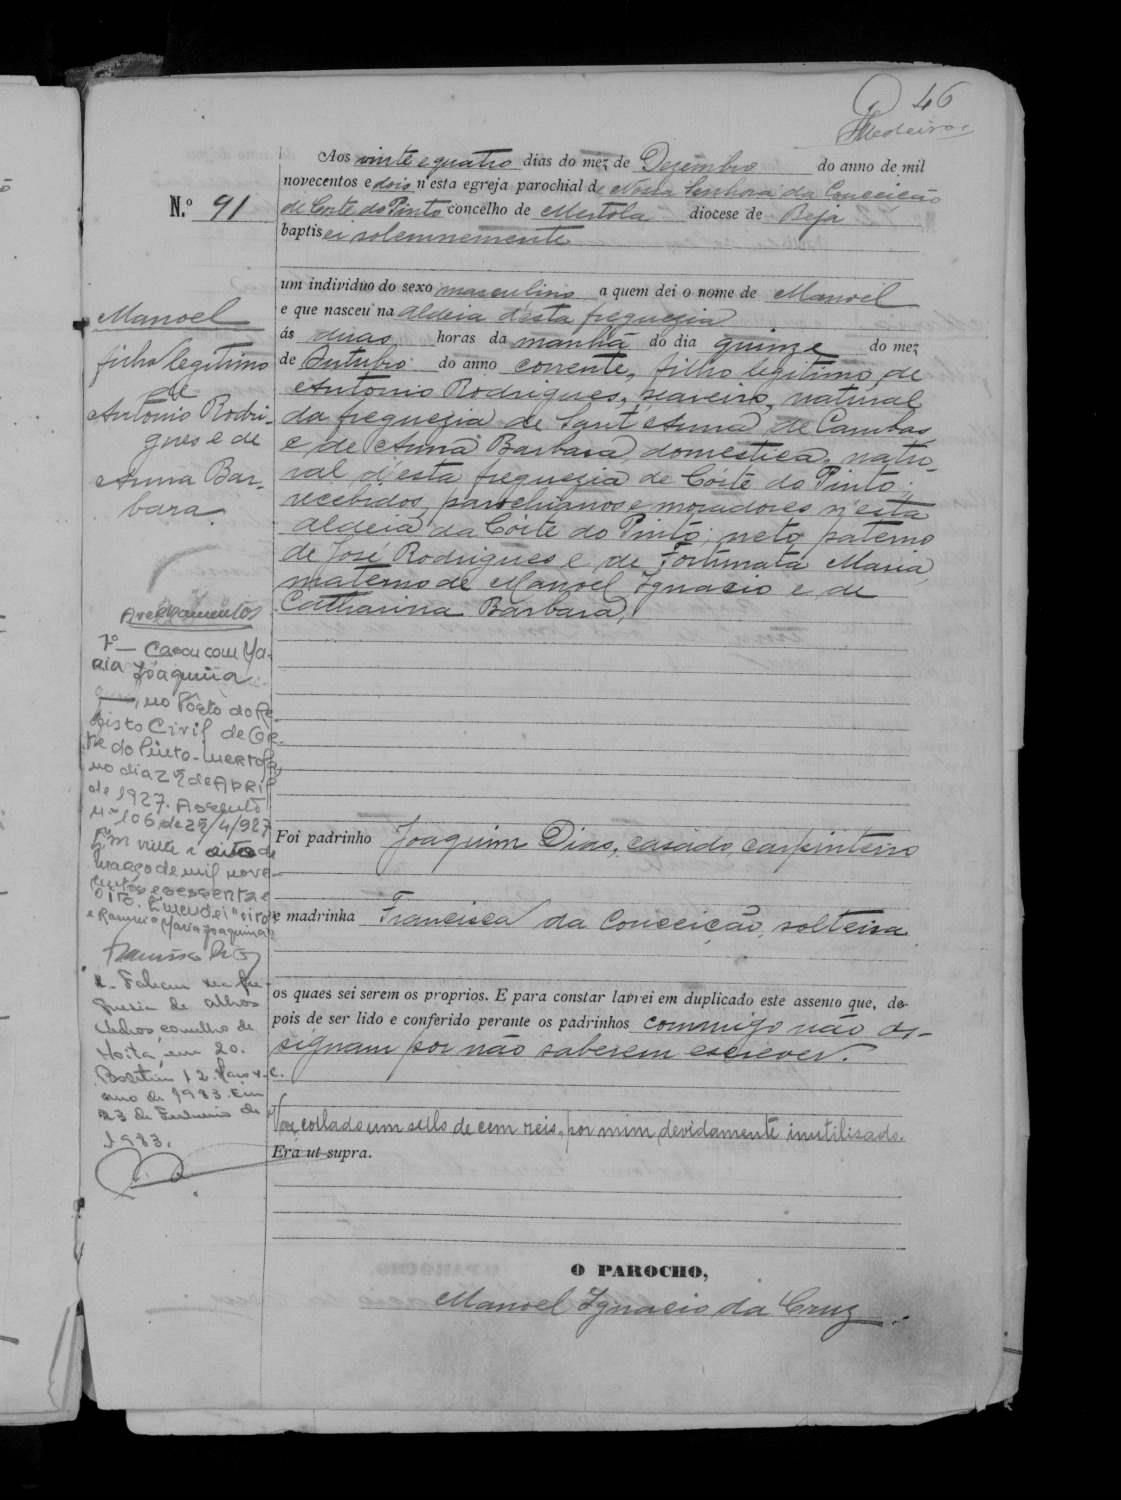 46
Medeiros
Aos vinte e quatro dias do mez de Dezembro do anno de mil
novecentos e dois n'esta egreja parochial de Nossa Senhora da Conceição
N.º 91
de Corte do Pinto concelho de Mertola diocese de Beja
baptisei solemnemente
um individuo do sexo masculino a quem dei o nome de Manoel
e que nasceu na aldeia d'esta freguezia
ás duas horas da manhã do dia quinze do mez
de Outubro do anno corrente, filho legitimo de
Antonio Rodrigues, seareiro, natural
da freguezia de Sant'Anna de Cambas
e de Anna Barbara, domestica, natu-
ral d'esta freguezia de Córte do Pinto;
recebidos, parochianos e moradores n'esta
aldeia da Corte do Pinto; neto paterno
de José Rodrigues e de Fortunata Maria,
materno de Manoel Ignacio e de
Catharina Barbara,
Manoel
filho legitimo
de
Antonio Rodri-
gues e de
Anna Bar-
bara.
Averbamentos
1º— Casou com Ma-
ria Joaquina
, no Posto do Re-
gisto Civil de Cor-
te do Pinto-Mertola,
no dia 25 de Abril
de 1927. Assento
nº 106 de 25/4/927
Em vinte e oito de
Março de mil nove-
centos e sessenta e
oito. Emendei "oito"
e Maria Joaquina
2- Faleceu na fre-
guesia de Alhos
Vedros, concelho de
Moita, em 20.
Boletim 12. Março.
ano de 1983. Em
23 de Fevereiro de
1983.
Foi padrinho Joaquim Dias, casado, carpinteiro
e madrinha Francisca da Conceição, solteira
os quaes sei serem os proprios. E para constar lavrei em duplicado este assento que, de-
pois de ser lido e conferido perante os padrinhos commigo não as-
signam por não saberem escrever.
Vae collado um sello de cem reis, por mim devidamente inutilisado.
Era ut supra.
O PAROCHO,
Manoel Ignacio da Cruz